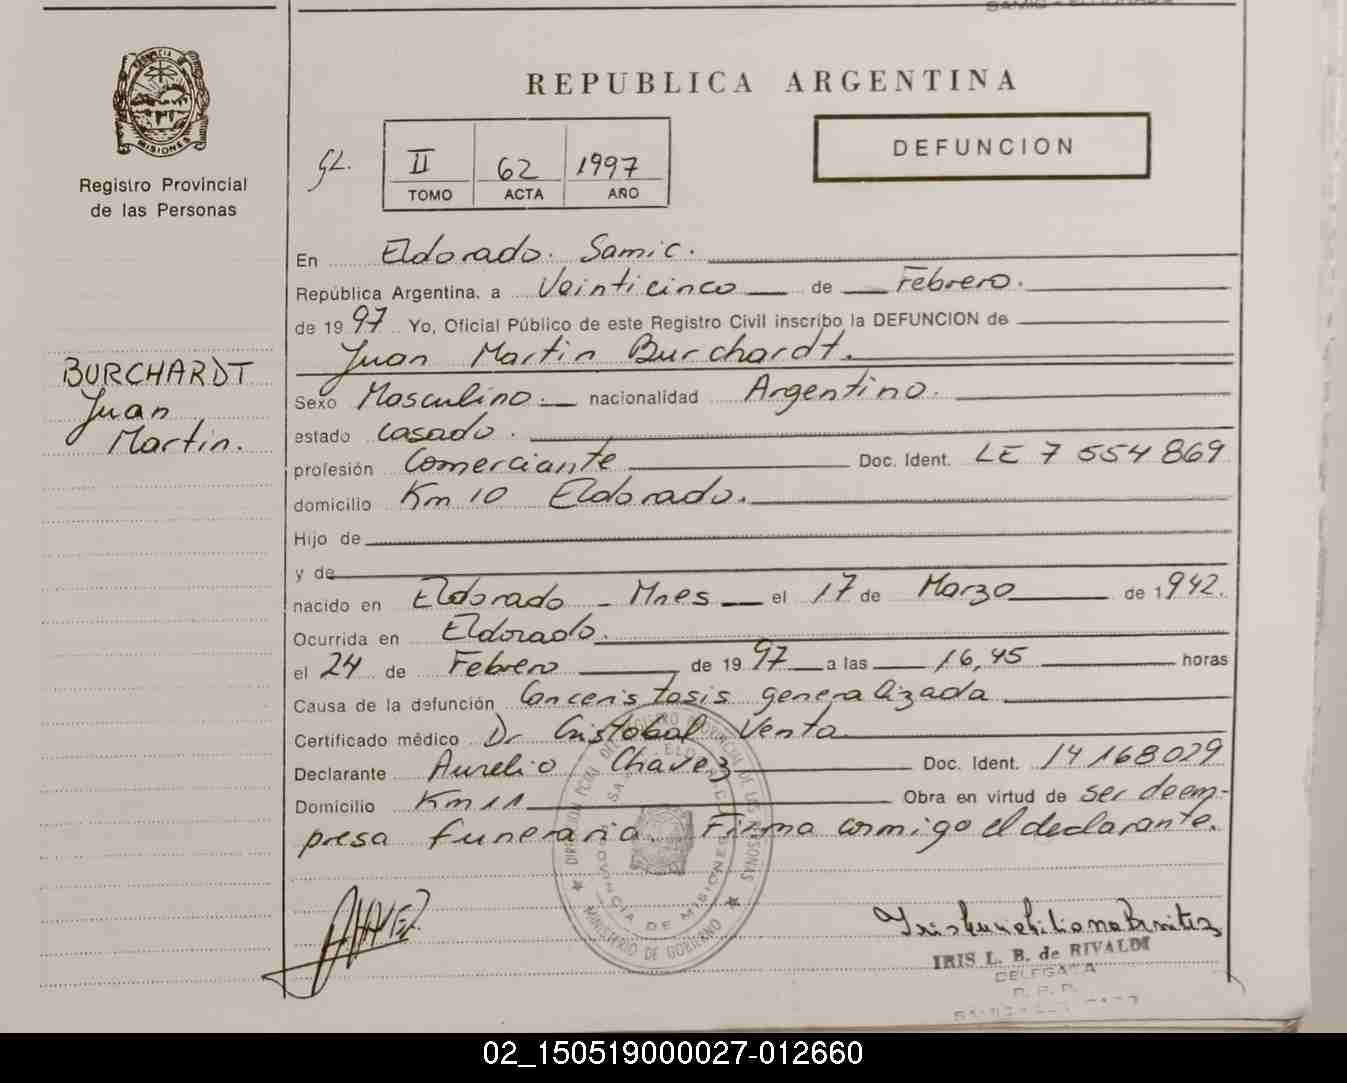 PROVINCIA DE
MISIONES
Registro Provincial
de las Personas
BURCHARDT
Juan
Martin.
REPUBLICA ARGENTINA
DEFUNCION
II 62 1997
TOMO ACTA AÑO
En Eldorado. Samic.
República Argentina, a Veinticinco de Febrero.
de 1997 Yo, Oficial Público de este Registro Civil inscribo la DEFUNCION de
Juan Martin Burchardt.
Sexo Masculino. nacionalidad Argentino.
estado casado.
profesión Comerciante Doc. Ident. LE 7 554 869
domicilio Km 10 Eldorado.
Hijo de
y de
nacido en Eldorado - Mnes el 17 de Marzo de 1942.
Ocurrida en Eldorado.
el 24 de Febrero de 1997 a las 16,45 horas
Causa de la defunción generalizada
Certificado médico Dr Cristobal Venta
Declarante Aurelio Chávez Doc. Ident. 14 168 029
Domicilio Km 11 Obra en virtud de ser de em-
presa funeraria. Firma conmigo el declarante.
DIRECCION PCIAL DEL REGISTRO PROVINCIAL DE LAS PERSONAS
ELDORADO
PROVINCIA DE MISIONES
MINISTERIO DE GOBIERNO
IRIS L. B. de RIVALDI
DELEGADA
02_150519000027-012660